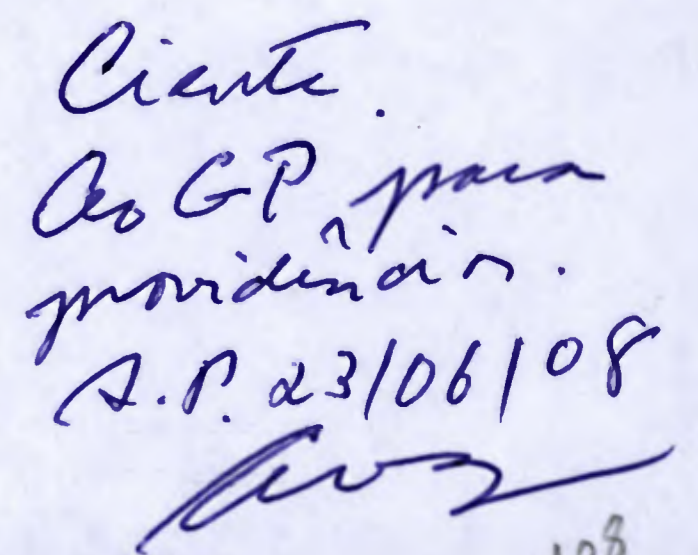 Ciente.
Ao GP para
providências.
S.P. 23/06/08